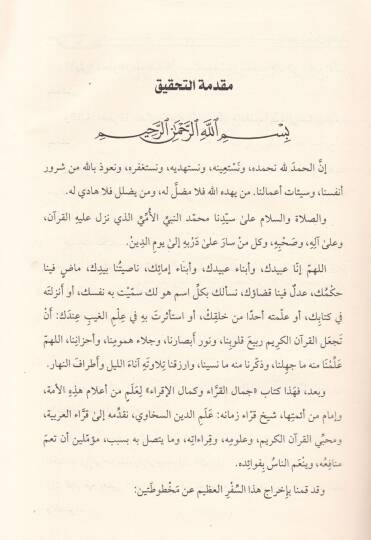 مقدمة التحقيق
بِسْمِ اللَّهِ الرَّحْمَنِ الرَّحِيمِ
إنَّ الحمدَ لله نحمده، ونَسْتعِينه، ونستهديه، ونستغفره، ونعوذ بالله من شرور
أنفسنا، وسيئات أعمالنا. من يهده الله فلا مضلَّ له، ومن يضلل فلا هادي له.
والصلاة والسلام على سيِّدنا محمّد النبيِّ الأُمِّيِّ الذي نزل عليهِ القرآن،
وعلىٰ آلِهِ، وصَحْبِهِ، وكل منْ سارَ علىٰ دَرْبهِ إلىٰ يومِ الدينْ.
اللهمّ إنّا عبيدك، وأبناء عبيدك، وأبنَاء إمائِك، ناصيتُنا بيدِك، ماضٍ فينا
حكْمُك، عدلٌ فينا قضاؤك، نسألك بكلِّ اسم هو لك سمّيْت به نفسك، أو أنزلتَه
في كتابِك، أو علّمته أحدًا من خلقِكْ، أو استأثرتَ بهِ في عِلْمِ الغيبِ عِندَك: أنْ
تجعَل القرآن الكريم ربيعَ قلوبِنا، ونور أبصارنا، وجلاء همومِنا، وأحزانِنا، اللهمّ
علِّمْنا منه ما جهِلنا، وذكّرنا منه ما نسينا، وارزقنا تِلاوتَهِ آناءَ الليل وأطرافَ النهار.
وبعد، فهٰذا كتاب «جمال القرّاء وكمال الإقراء» لِعَلَمٍ من أعلام هذِهِ الأمة،
وإمام من أئمتِها، شيخ قرّاء زمانه: عَلَمِ الدين السخاوي، نقدِّمه إلىٰ قرّاء العربية،
ومحبِّي القرآن الكريم، وعلومِه، وقِراءاتِه، وما يتصل به بسبب، مؤمّلين أن تعمّ
منافعُه، وينْعَم الناسُ بِفوائدِه.
وقد قمنا بإخراج هذا السِّفْرِ العظيم عن مَخْطوطتَين: